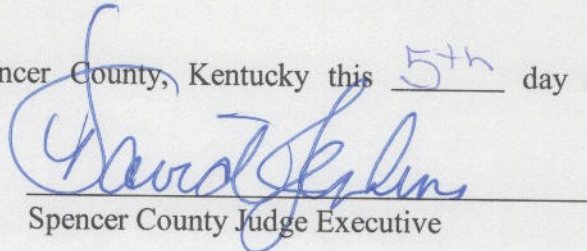 ncer County, Kentucky this 5th day
David Jenkins
Spencer County Judge Executive